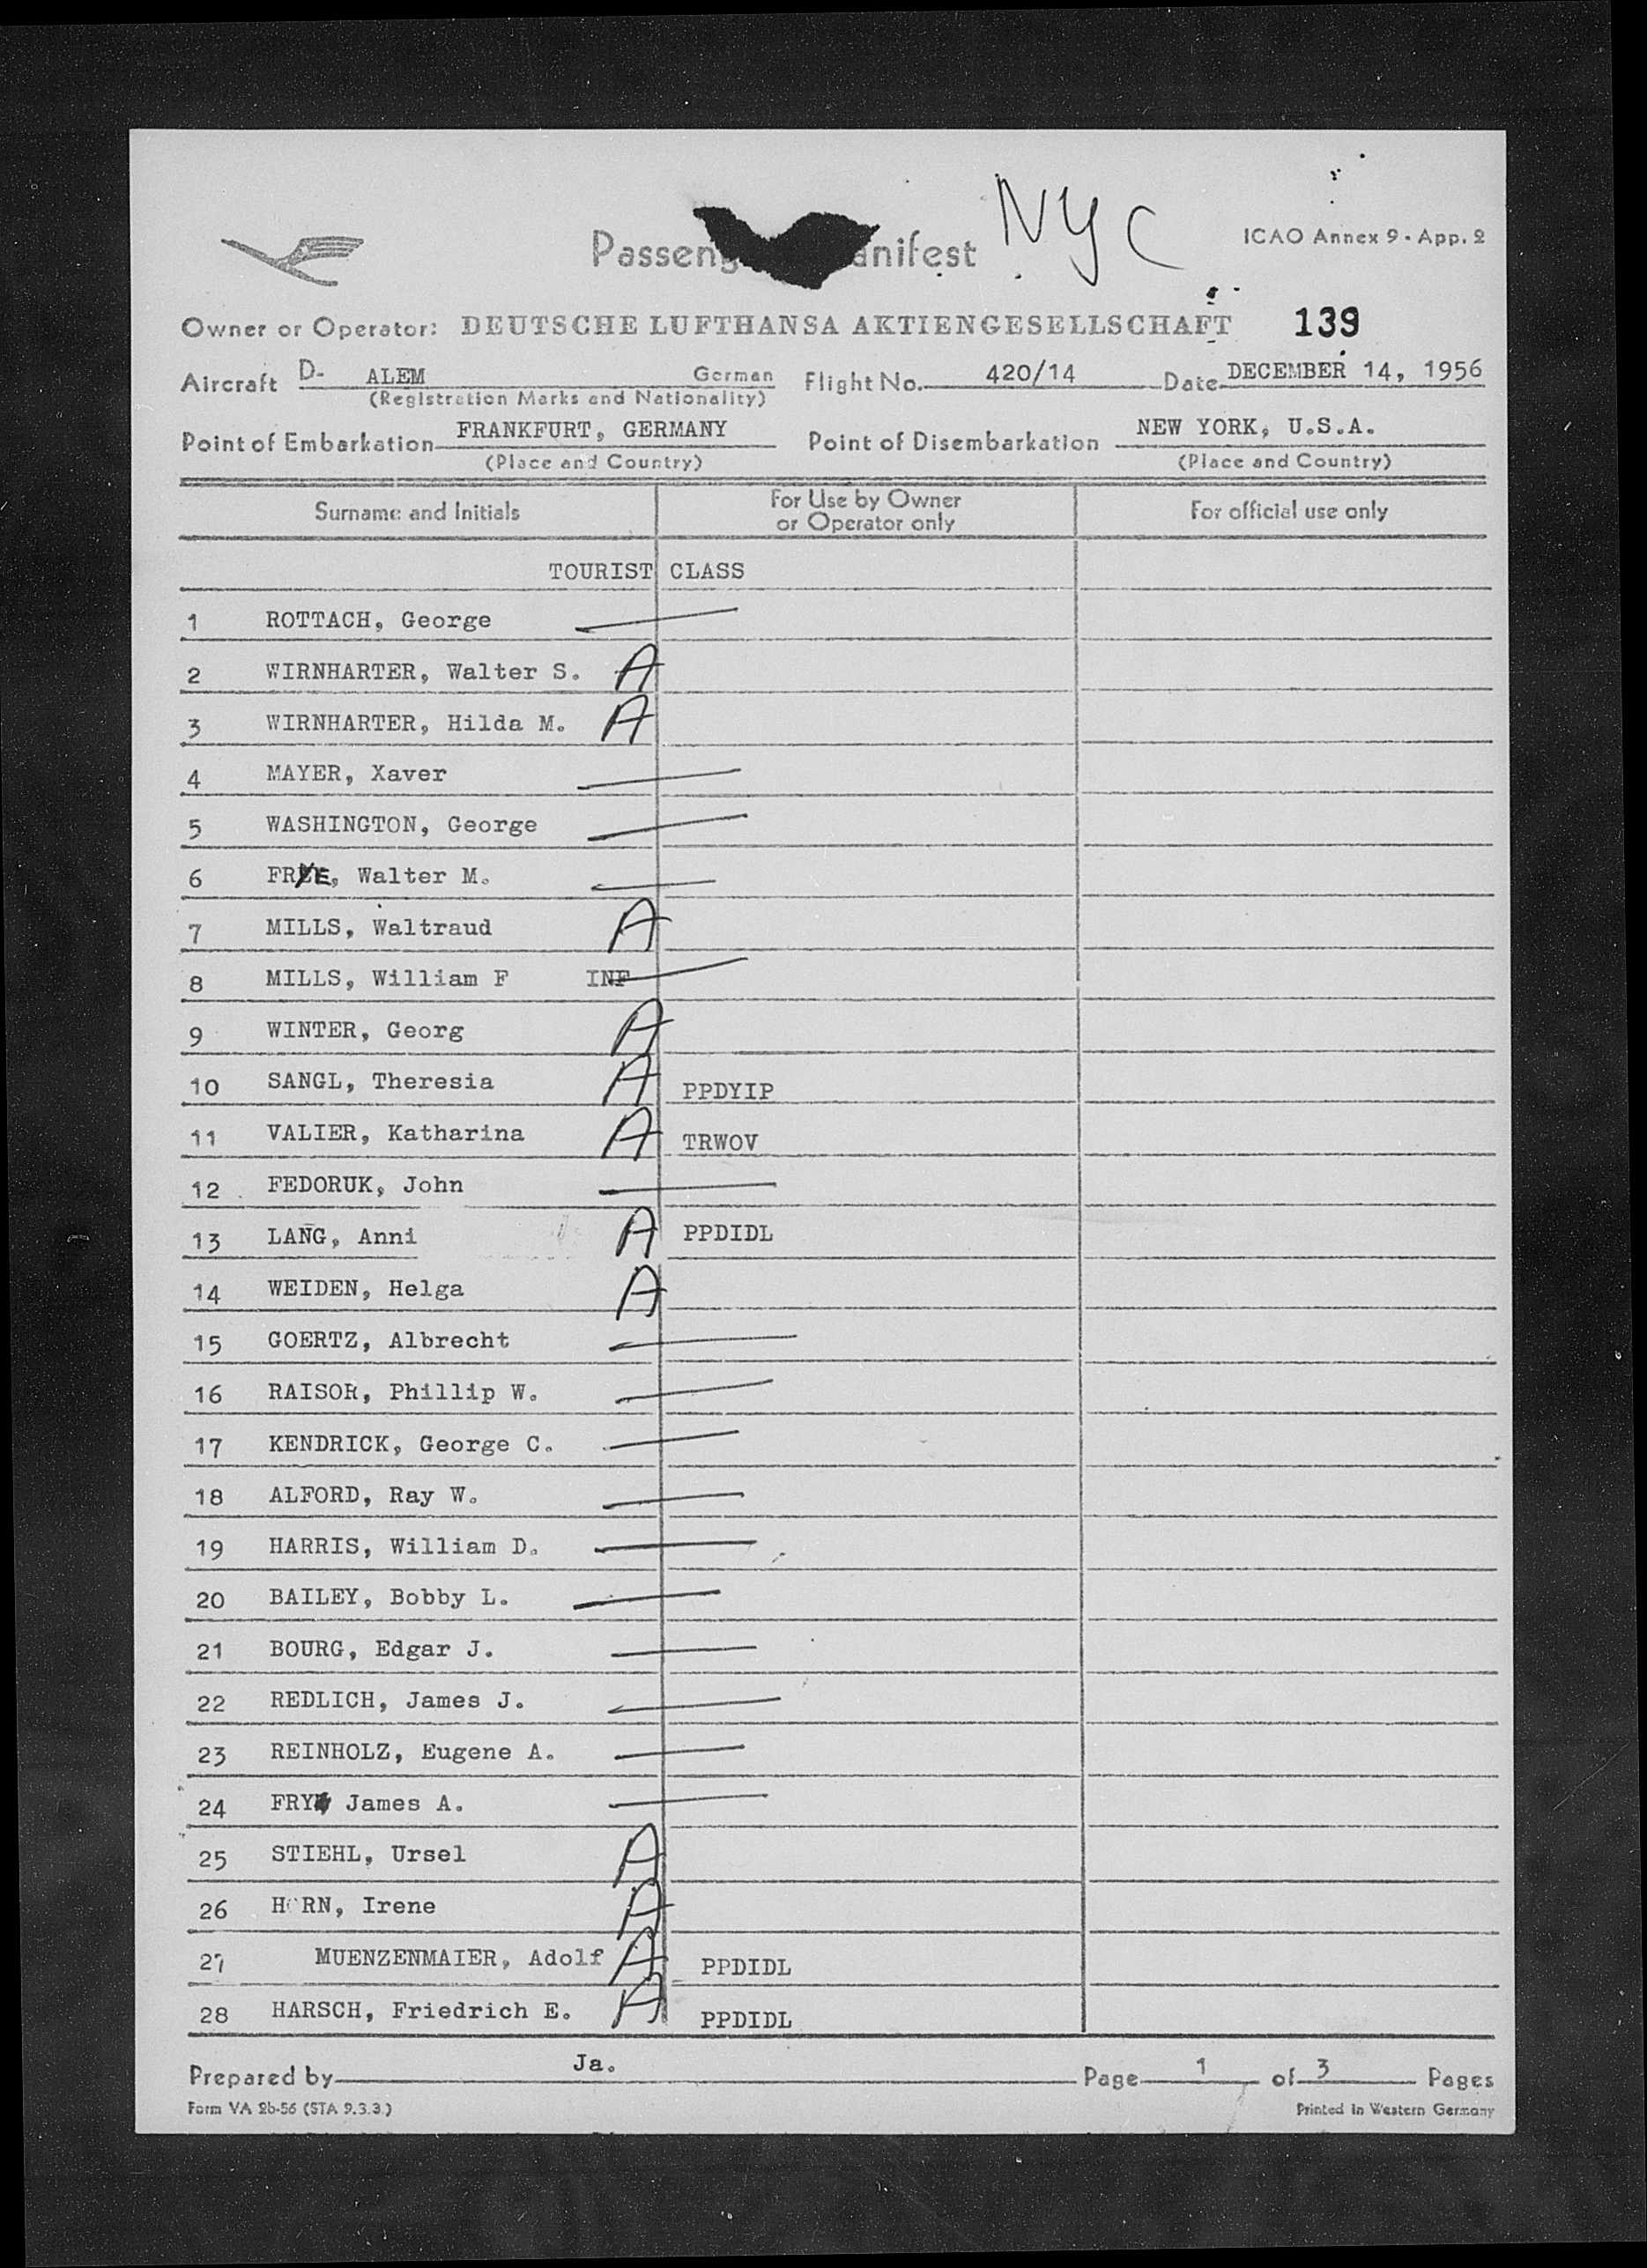 NYC
ICAO Annex 9 - App. 2
Owner or Operator: DEUTSCHE LUFTHANSA AKTIENGESELLSCHAFT 139
Aircraft D- ALEM German Flight No. 420/14 Date DECEMBER 14, 1956
(Registration Marks and Nationality)
Point of Embarkation FRANKFURT, GERMANY Point of Disembarkation NEW YORK, U.S.A.
(Place and Country) (Place and Country)
Surname and Initials For Use by Owner or Operator only For official use only
TOURIST CLASS
1 ROTTACH, George
2 WIRNHARTER, Walter S. A
3 WIRNHARTER, Hilda M. A
4 MAYER, Xaver
5 WASHINGTON, George
6 FRYE, Walter M.
7 MILLS, Waltraud A
8 MILLS, William F INF
9 WINTER, Georg A
10 SANGL, Theresia A PPDYIP
11 VALIER, Katharina A TRWOV
12 FEDORUK, John
13 LANG, Anni A PPDIDL
14 WEIDEN, Helga A
15 GOERTZ, Albrecht
16 RAISOR, Phillip W.
17 KENDRICK, George C.
18 ALFORD, Ray W.
19 HARRIS, William D.
20 BAILEY, Bobby L.
21 BOURG, Edgar J.
22 REDLICH, James J.
23 REINHOLZ, Eugene A.
24 FRY James A.
25 STIEHL, Ursel A
26 Irene A
27 MUENZENMAIER, Adolf A PPDIDL
28 HARSCH, Friedrich E. A PPDIDL
Prepared by Ja. Page 1 of 3 Pages
Form VA 2b-56 (STA 9.3.3.) Printed in Western Germany